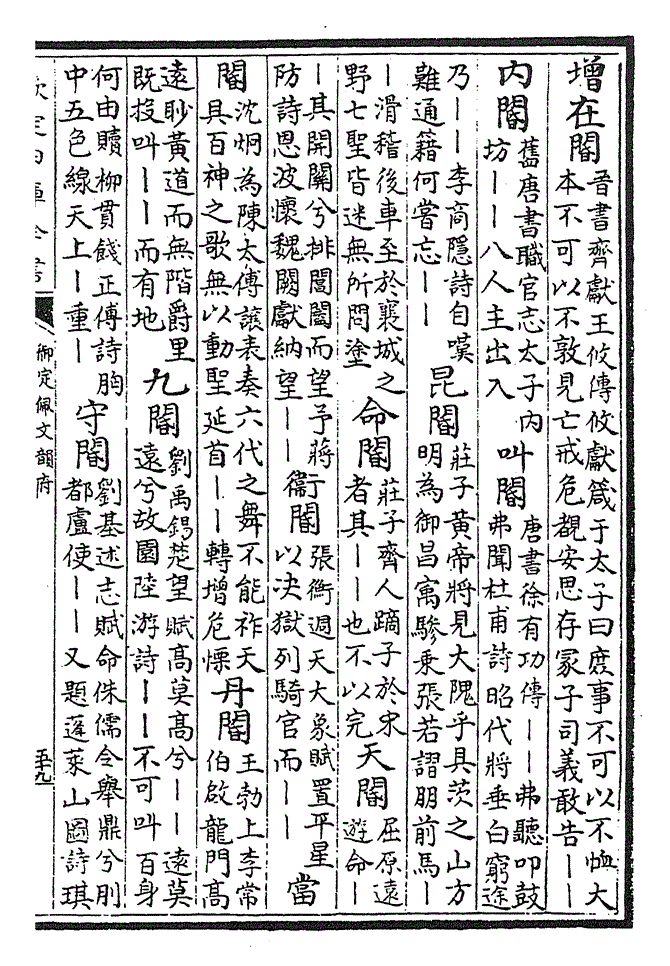 增在閽 晉書齊獻王攸傳攸獻箴于太子曰庶事不可以不恤大
本不可以不敦見亡戒危覩安思存冢子司義敢告——
内閽 舊唐書職官志太子内
坊——八人主出入
叫閽 唐書徐有功傳——弗聽叩鼓
弗聞杜甫詩昭代將垂白窮途
乃——李商隱詩自嘆
難通籍何嘗忘——
昆閽 莊子黃帝將見大隗乎具茨之山方
明為御昌寓驂乘張若謵朋前馬—
—滑稽後車至於襄城之
野七聖皆迷無所問塗
命閽 莊子齊人蹢子於宋
者其——也不以完
天閽 屈原遠
遊命—
—其開關兮排閶闔而望予蔣
防詩思波懷魏闕獻納望——
衞閽 張衡週天大象賦置平星
以决獄列騎官而——
當
閽 沈炯為陳太傅讓表奏六代之舞不能祚天
具百神之歌無以動聖延首——轉增危慄
丹閽 王勃上李常
伯啟龍門高
遠眇黃道而無階爵里
既投叫——而有地
九閽 劉禹錫楚望賦高莫高兮——遠莫
遠兮故園陸游詩——不可叫百身
何由贖柳貫餞正傅詩胸
中五色線天上—重—
守閽 劉基述志賦命侏儒令舉鼎兮刖
都盧使——又題蓬萊山圖詩琪
欽定四庫全書
御定佩文韻府
五十九